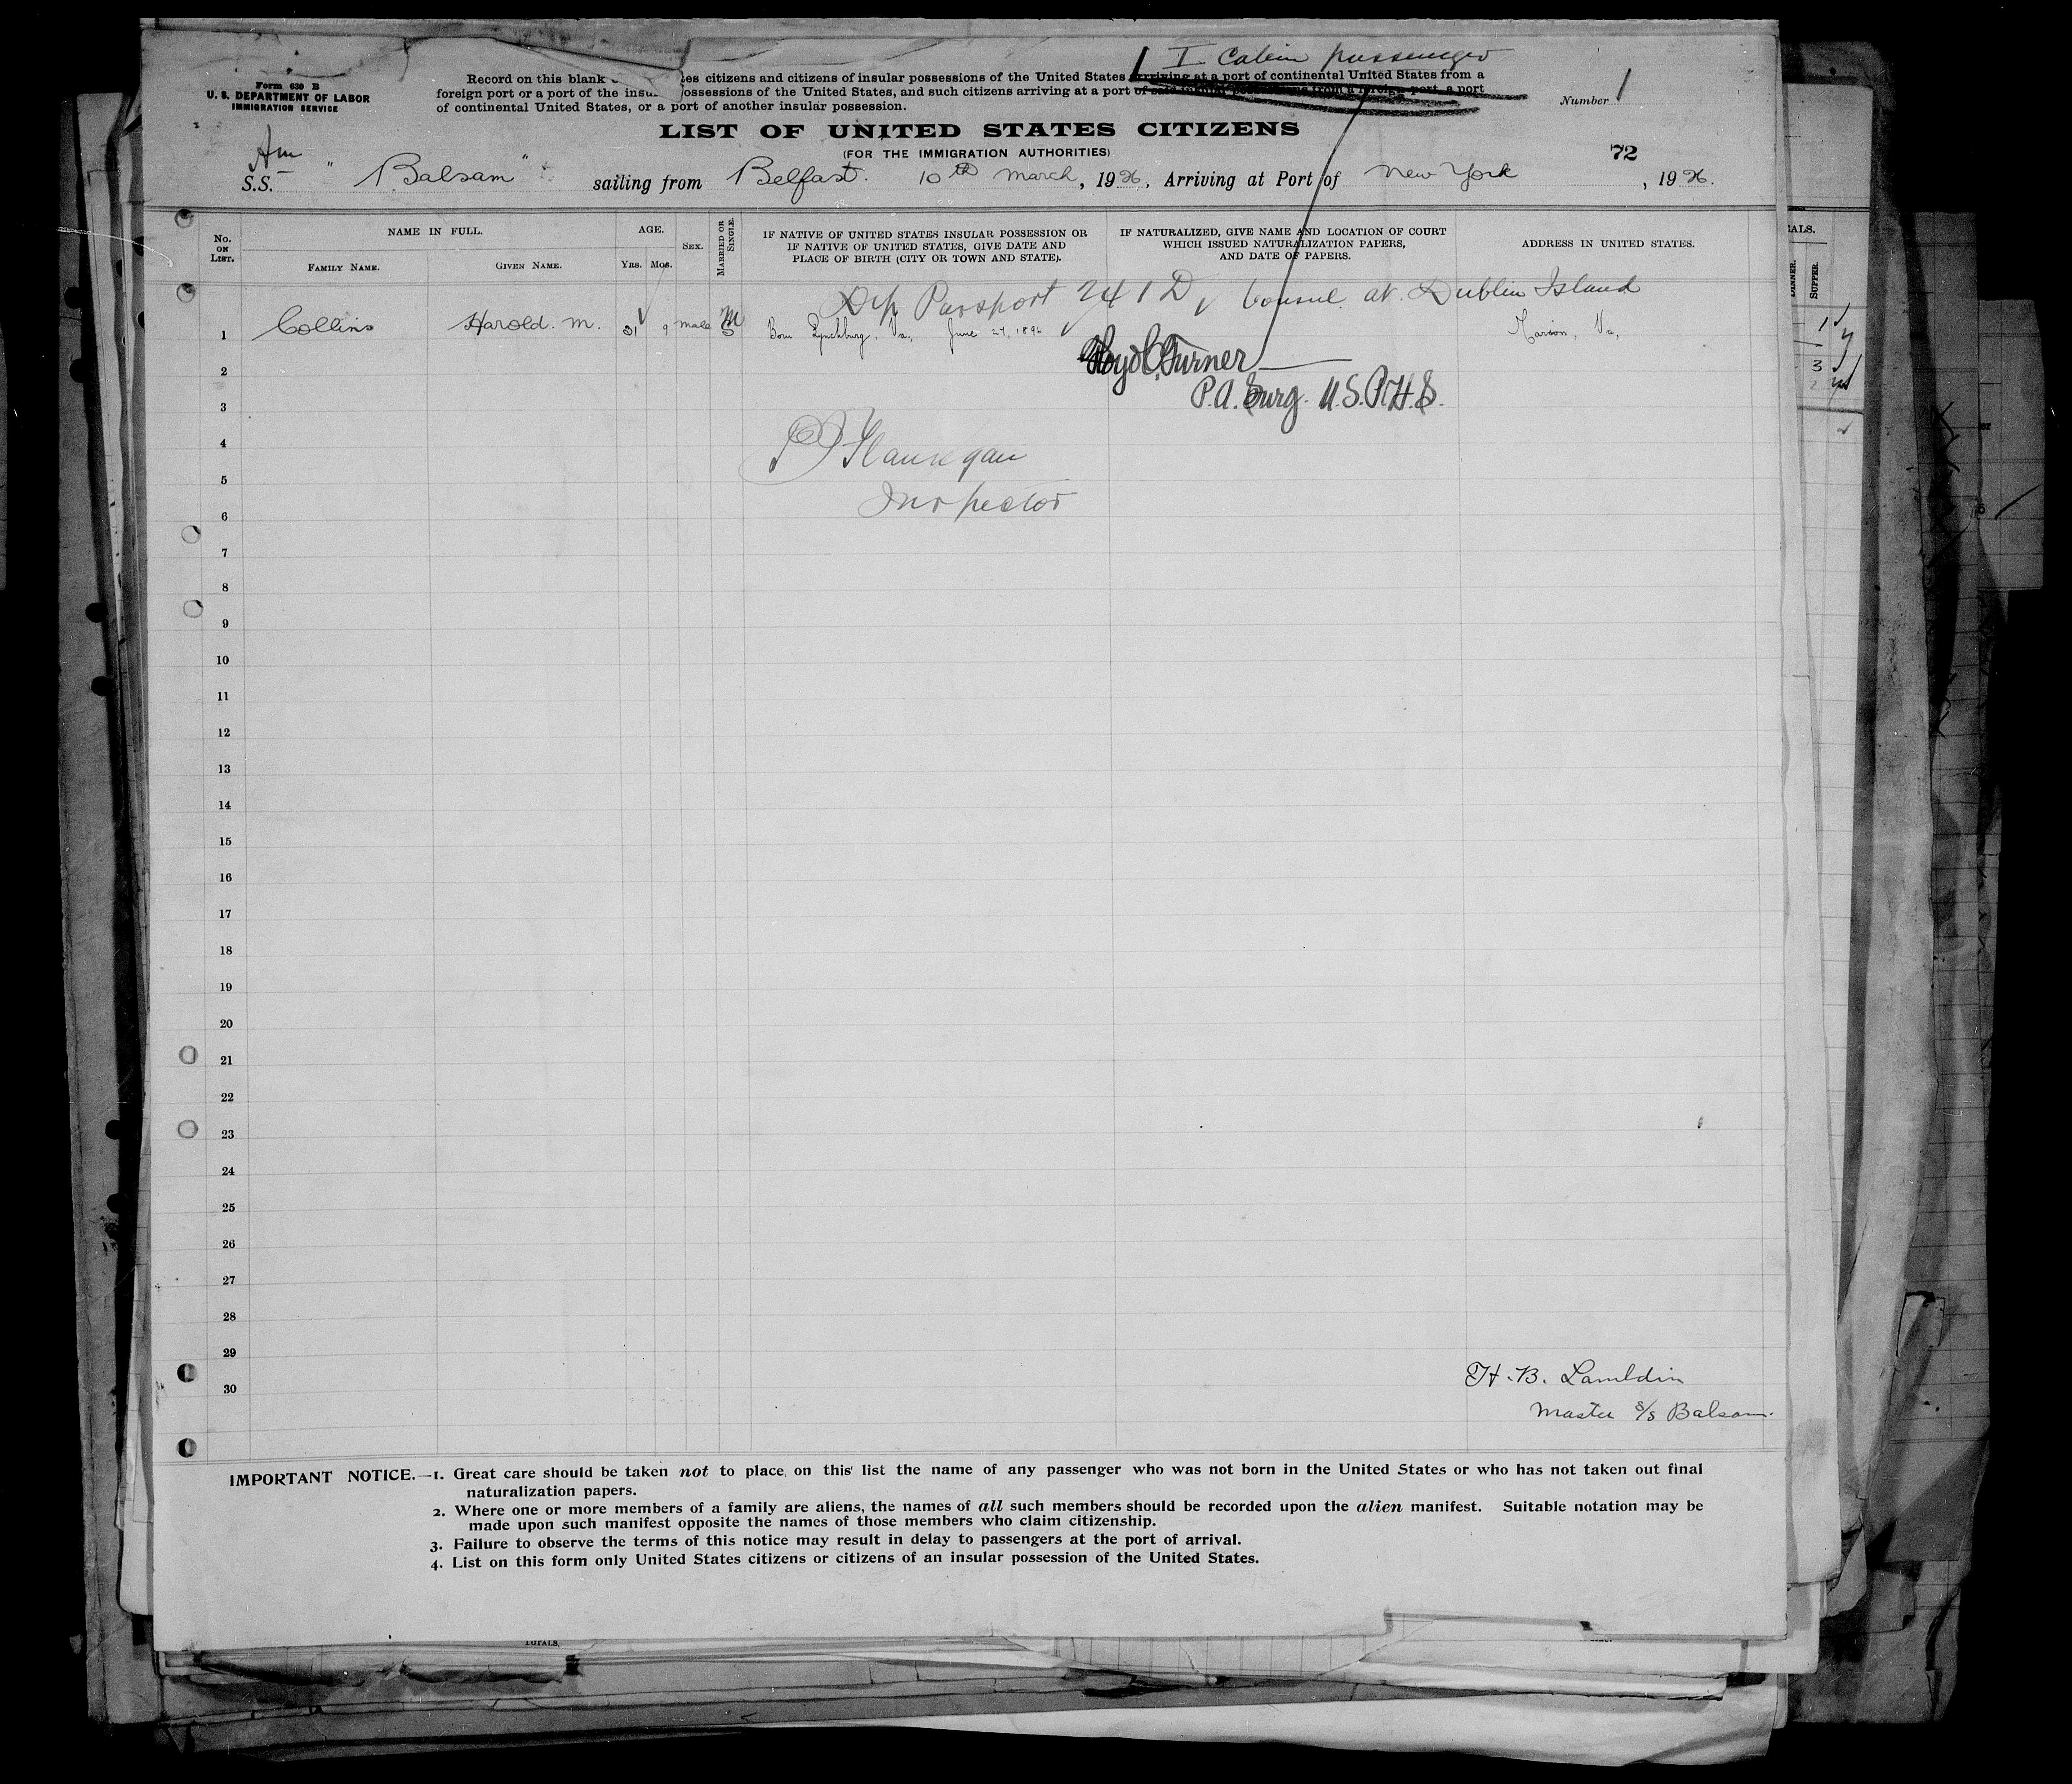 I Cabin passenger
Form 630 B
U. S. DEPARTMENT OF LABOR
IMMIGRATION SERVICE
Record on this blank es citizens and citizens of insular possessions of the United States arriving at a port of continental United States from a
foreign port or a port of the insu ossessions of the United States, and such citizens arriving at a port of said insular possessions from a foreign port, a port
of continental United States, or a port of another insular possession.
Number 1
LIST OF UNITED STATES CITIZENS
(FOR THE IMMIGRATION AUTHORITIES)
72
Am
S.S. "Balsam" sailing from Belfast. 10th March, 1926, Arriving at Port of New York, 1926.
No. ON LIST.
NAME IN FULL.
FAMILY NAME.
GIVEN NAME.
AGE.
YRS. MOS.
SEX.
MARRIED OR SINGLE.
IF NATIVE OF UNITED STATES INSULAR POSSESSION OR
IF NATIVE OF UNITED STATES, GIVE DATE AND
PLACE OF BIRTH (CITY OR TOWN AND STATE).
IF NATURALIZED, GIVE NAME AND LOCATION OF COURT
WHICH ISSUED NATURALIZATION PAPERS,
AND DATE OF PAPERS.
ADDRESS IN UNITED STATES.
Passport 241 D, Consul at Dublin Island
1 Collins Harold. M. 31 9 male M Born Lynchburg, Va., June 27, 189 Marion, Va,
2 Turner
P.A. Surg. U.S.P.H.S.
3
4
Flannegan
5
Inspector
6
7
8
9
10
11
12
13
14
15
16
17
18
19
20
21
22
23
24
25
26
27
28
29
H. B.
30
Master S/S Balsam.
IMPORTANT NOTICE.—1. Great care should be taken not to place on this list the name of any passenger who was not born in the United States or who has not taken out final
naturalization papers.
2. Where one or more members of a family are aliens, the names of all such members should be recorded upon the alien manifest. Suitable notation may be
made upon such manifest opposite the names of those members who claim citizenship.
3. Failure to observe the terms of this notice may result in delay to passengers at the port of arrival.
4. List on this form only United States citizens or citizens of an insular possession of the United States.
TOTALS.
DINNER.
SUPPER.